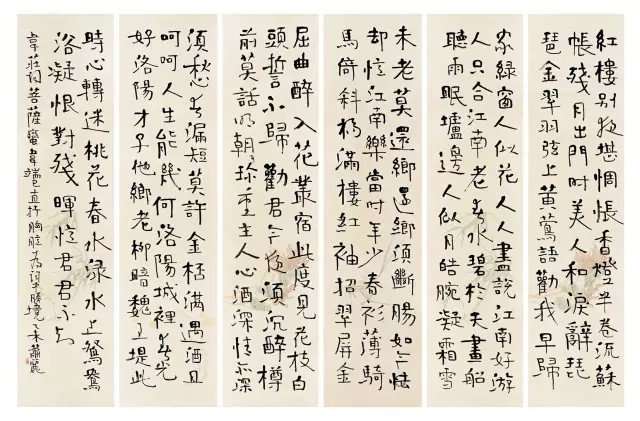 紅樓別夜堪惆悵香燈半卷流蘇
帳殘月出門时美人和淚辭琵
琶金翠羽弦上黄鶯語勸我早歸
家綠窗人似花人人盡説江南好游
人只合江南老春水碧於天畫船
聽雨眠壚邊人似月皓腕凝霜雪
未老莫還鄉還鄉須斷腸如今
却憶江南樂當时年少春衫薄騎
馬倚斜橋滿樓紅袖招翠屏金
屈曲醉入花叢宿此度見花枝白
頭誓不歸勸君今夜須沉醉樽
前莫話明朝珍重主人心酒深情亦深
須愁春漏短莫許金杯滿遇酒且
呵呵人生能幾何洛陽城裡春光
好洛陽才子他鄉老柳暗魏王堤此
時心轉迷桃花春水渌水上鴛鴦
浴凝恨對殘暉憶君君不知
韋莊詞菩薩蠻韋端己直抒胸臆為詞中勝境乙未蕭